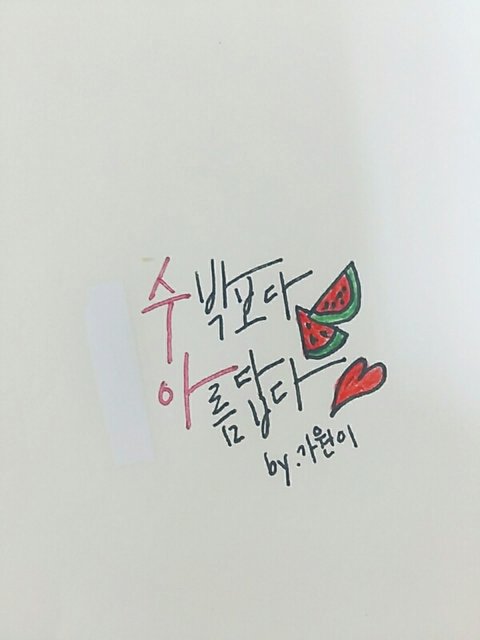 수박보다
아름답다
by.가원이